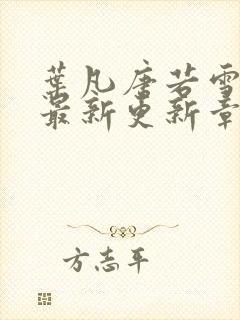 葉凡唐若雪
最新更新章
方志平